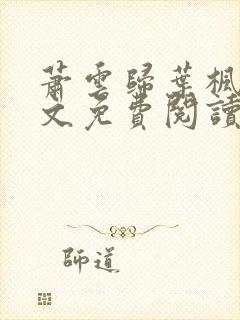 蕭雲歸葉楓
文免費閱讀
師道